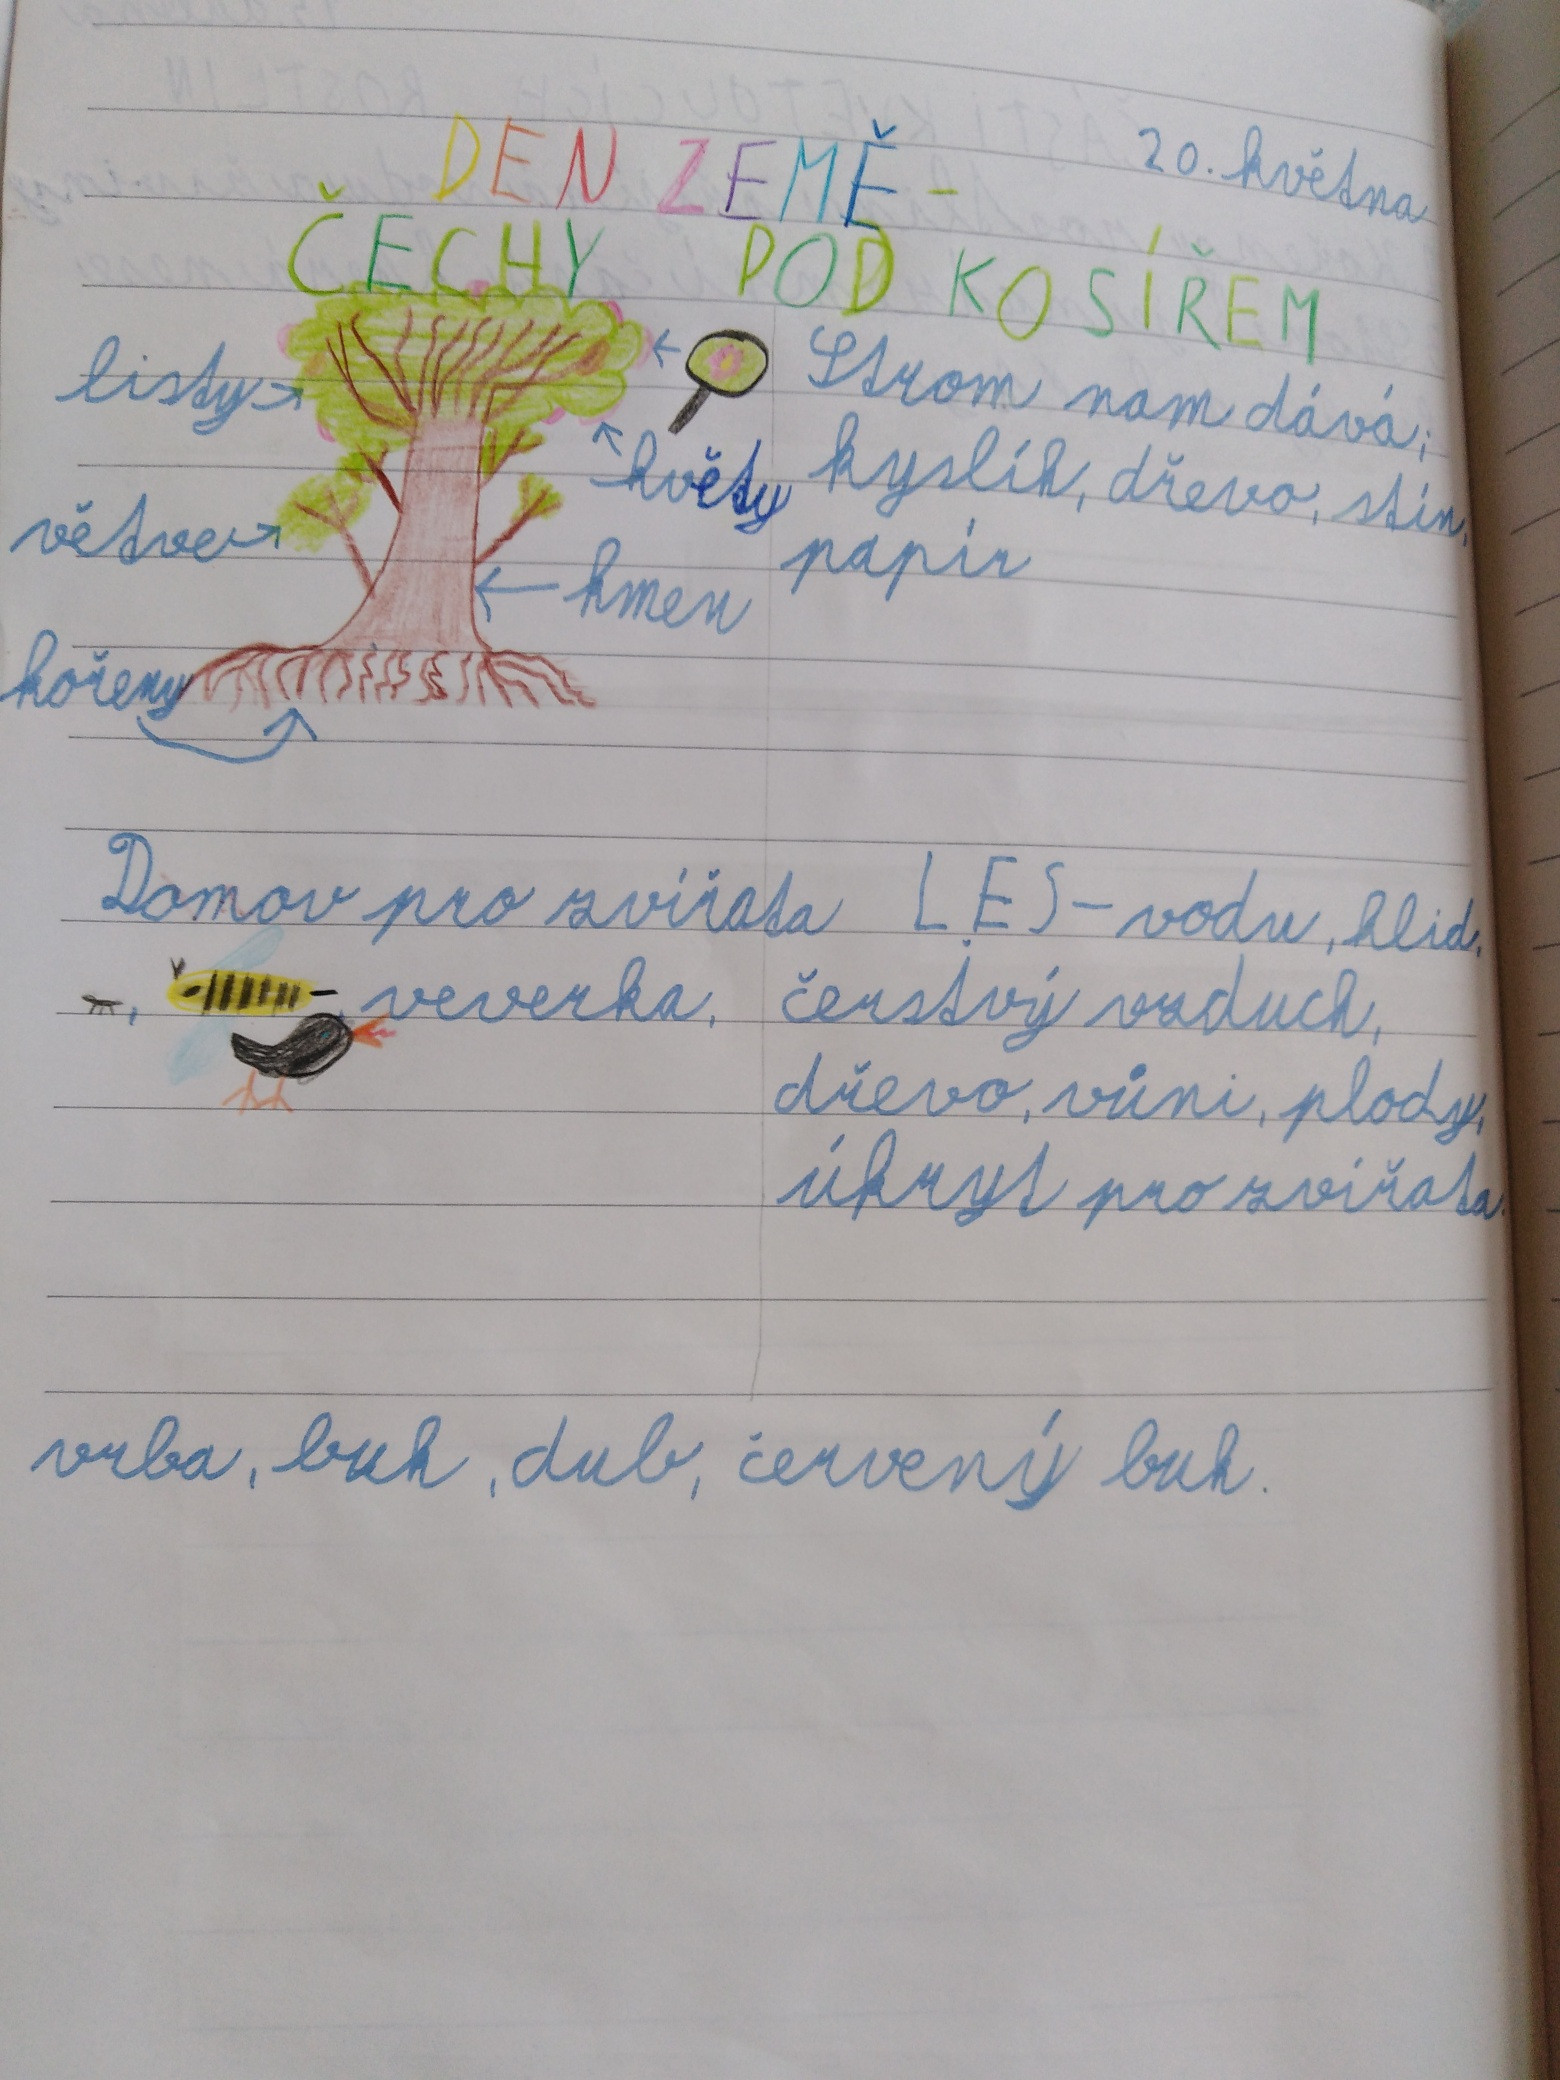 20. května
DEN ZEMĚ -
ČECHY POD KOSÍŘEM
listy
větve
kořeny
květy
kmen
Strom nam dává;
kyslík, dřevo, stín,
papír
Domov pro zvířata
, , veverka,
LES - vodu, klid,
čerstvý vzduch,
dřevo, vůni, plody,
úkryt pro zvířata.
vrba, buk, dub, červený buk.